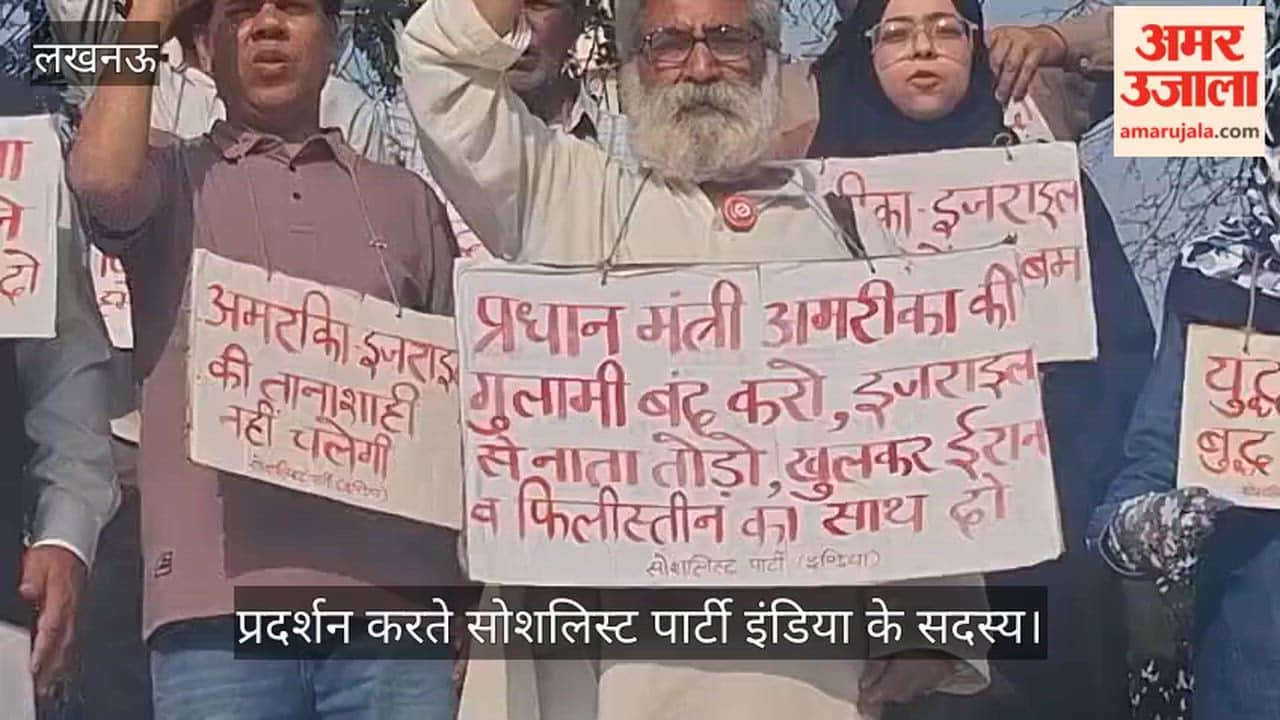 लखनऊ
अमर
उजाला
amarujala.com
अमरकि-इजराइल
की तानाशाही
नहीं चलेगी
सोशलिस्ट पार्टी (इण्डिया)
प्रधान मंत्री अमरीका की
गुलामी बंद करो, इजराइल
से नाता तोड़ो, खुलकर ईरान
व फिलीस्तीन का साथ दो
सोशलिस्ट पार्टी (इण्डिया)
रीका-इजराइल
बम
युद्ध
बुद्ध
दो
प्रदर्शन करते सोशलिस्ट पार्टी इंडिया के सदस्य।